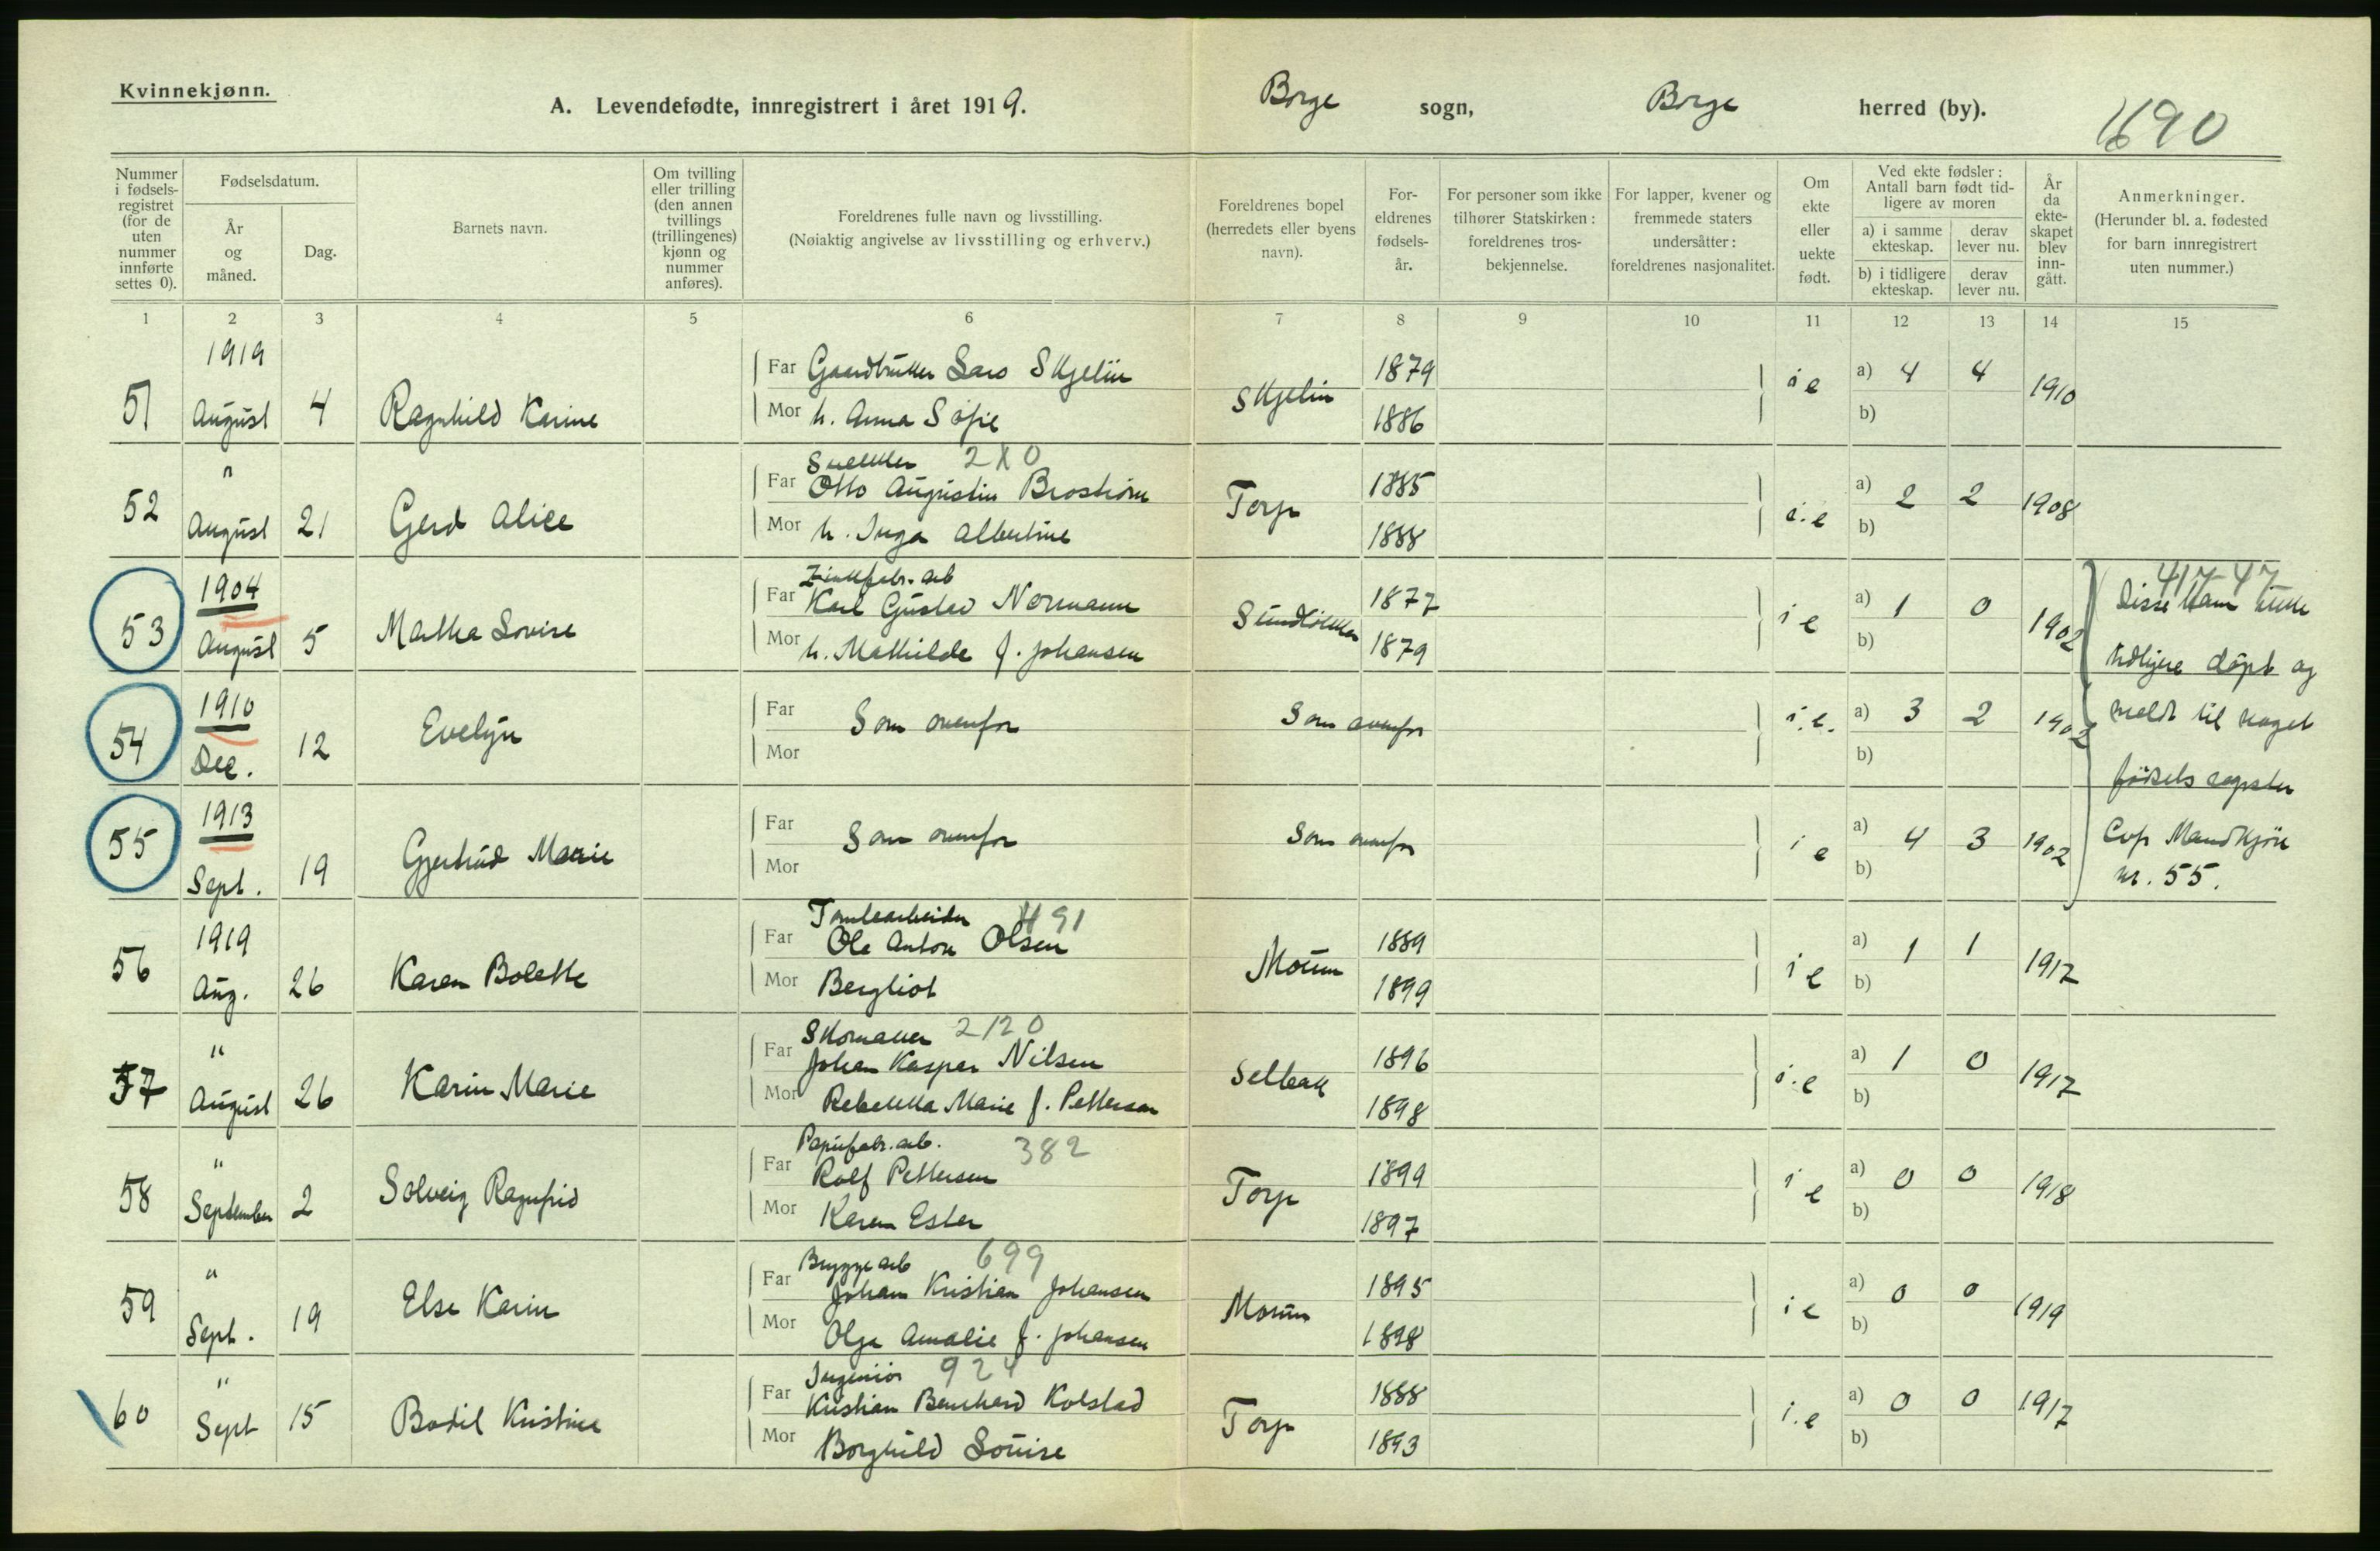 Kvinnekjønn.
A. Levendefødte, innregistrert i året 1919. Borge sogn, Borge herred (by).
1690
Nummer i fødsels-registret (for de uten nummer innførte settes 0).
Fødselsdatum.
År og måned.
Dag.
Barnets navn.
Om tvilling eller trilling (den annen tvillings (trillingenes) kjønn og nummer anføres).
Foreldrenes fulle navn og livsstilling.
(Nøiaktig angivelse av livsstilling og erhverv.)
Foreldrenes bopel (herredets eller byens navn).
For-eldrenes fødsels-år.
For personer som ikke tilhører Statskirken: foreldrenes tros-bekjennelse.
For lapper, kvener og fremmede staters undersåtter: foreldrenes nasjonalitet.
Om ekte eller uekte født.
Ved ekte fødsler: Antall barn født tid-ligere av moren
a) i samme ekteskap.
derav lever nu.
b) i tidligere ekteskap.
derav lever nu.
År da ekte-skapet blev inn-gått.
Anmerkninger.
(Herunder bl. a. fødested for barn innregistrert uten nummer.)
1 2 3 4 5 6 7 8 9 10 11 12 13 14 15
1919
51 August 4 Ragnhild Karine
Far Gaardbruker Lars Skjelin
Mor h. Anna Sofie
Skjelin 1879 1886 i e a) 4 4 b) 1910
"
52 August 21 Gerd Alice
Snekker 280
Far Otto Augustin Brostrøm
Mor h. Inga Albertine
Torp 1885 1888 i.e a) 2 2 b) 1908
1904
53 August 5 Martha Lovise
Zinkfabr. arb
Far Karl Gustav Normann
Mor h. Mathilde f. Johansen
Sundløkka 1877 1879 i e a) 1 0 b) 1902
417 47
Disse barn ikke
tidligere døpt og
meldt til noget
fødsels register
Cop Mandkjøn
nr. 55.
1910
54 Dec. 12 Evelyn
Far Som ovenfor
Mor
Som ovenfor i.e. a) 3 2 b) 1902
1913
55 Sept. 19 Gjertrud Marie
Far Som ovenfor
Mor
Som ovenfor i e a) 4 3 b) 1902
1919
56 Aug. 26 Karen Bolette
Tomtearbeider 491
Far Ole Anton Olsen
Mor Bergliot
Moum 1889 1899 i e a) 1 1 b) 1917
"
57 August 26 Karin Marie
Skomaker 2120
Far Johan Kaspar Nilsen
Mor Rebekka Marie f. Pettersen
Selbak 1896 1898 i.e a) 1 0 b) 1917
"
58 September 2 Solveig Ragnfrid
Papirfabr. arb. 382
Far Rolf Pettersen
Mor Karen Ester
Torp 1899 1897 i e a) 0 0 b) 1918
"
59 Sept. 19 Else Karin
Bryggearb 699
Far Johan Kristian Johansen
Mor Olga Amalie f. Johansen
Moum 1895 1898 i e a) 0 0 b) 1919
"
60 Sept 15 Bodil Kristine
Ingeniør 924
Far Kristian Bernhard Kolstad
Mor Borghild Louise
Torp 1888 1893 i.e a) 0 0 b) 1917